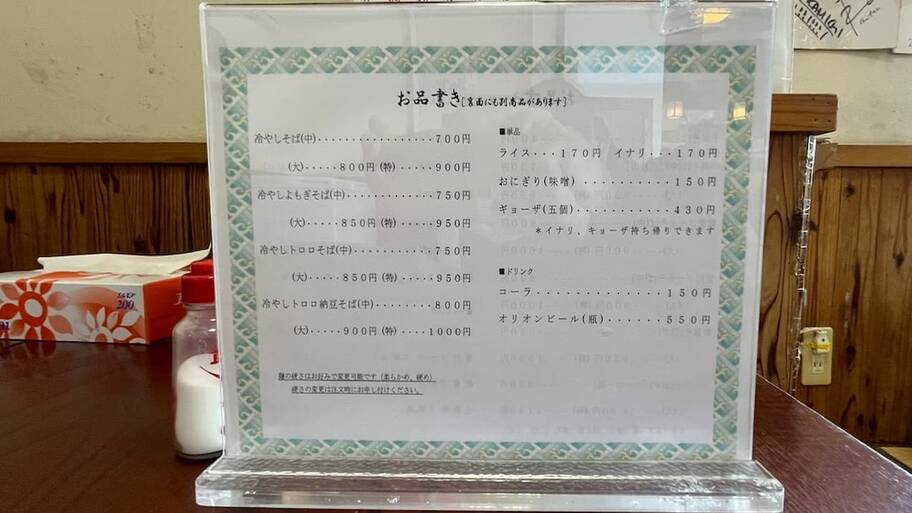 お品書き[裏面にも別商品があります]
冷やしそば(中)................700円
(大).....800円 (特)....900円
冷やしよもぎそば(中)...........750円
(大).....850円 (特)....950円
冷やしトロロそば(中)...........750円
(大).....850円 (特)....950円
冷やしトロロ納豆そば(中)........800円
(大).....900円 (特)...1000円
麺の硬さはお好みで変更可能です（柔らかめ、硬め）
硬さの変更は注文時にお申し付けください。
■単品
ライス...170円 イナリ...170円
おにぎり(味噌) ...........150円
ギョーザ(五個)............430円
＊イナリ、キョーザ持ち帰りできます
■ドリンク
コーラ...............150円
オリオンビール(瓶)......550円
エルモア
200